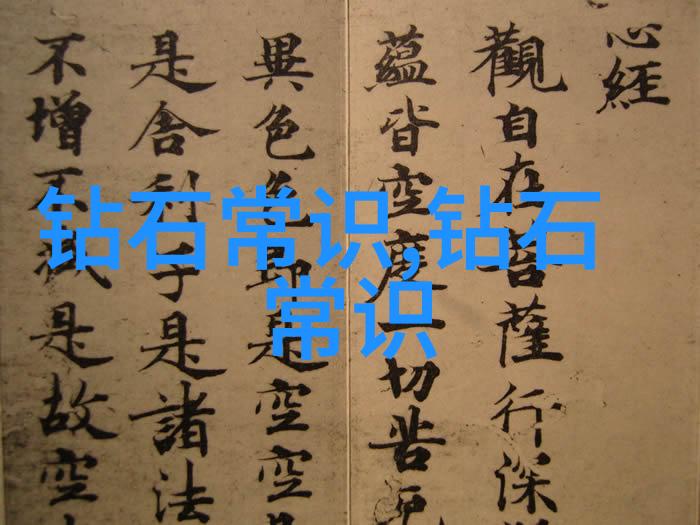 心經
觀自在菩薩行深
蘊皆空度一切苦厄
異色色即是空空
是舍利子是諸法
不增不減是故空
钻石常识,钻石
常识